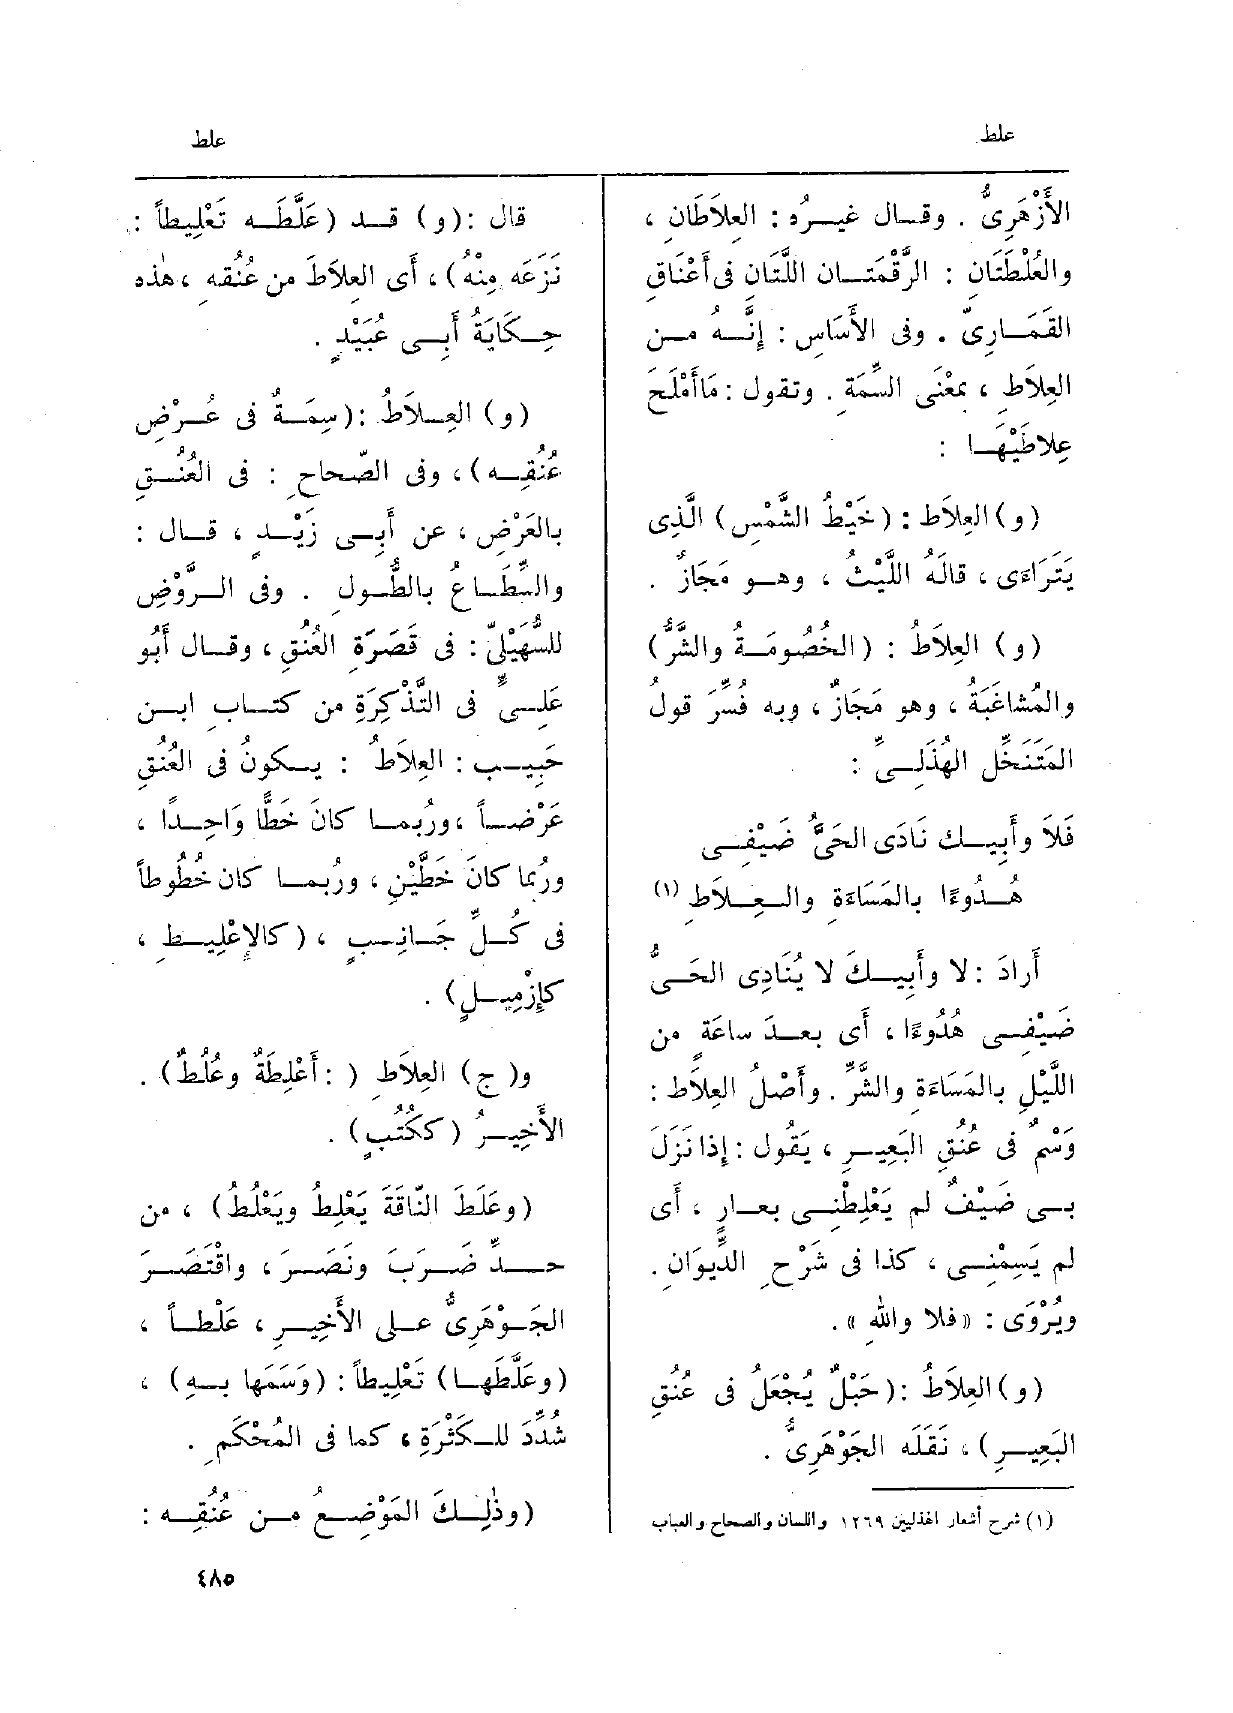 علط
علط
الأَزْهَرِىُّ . وقال غيرُه : العِلاَطَانِ ،
والعُلْطَتَانِ : الرَّقْمَتَان اللَّتَان فى أَعْنَاقِ
القَمَارِىِّ . وفى الأَسَاسِ : إِنَّهُ من
العِلاَطِ ، بمَعْنَى السِّمَةِ . وتقول : مَا أَمْلَحَ
عِلاطَيْهَا :
(و) العِلاَط : (خَيْطُ الشَّمْسِ) الَّذِى
يَتَرَاءَى ، قالَهُ اللَّيْثُ ، وهو مَجَازٌ .
(و) العِلاَطُ : (الخُصُومَةُ والشَّرُّ)
والمُشاغَبَةُ ، وهو مَجَازٌ ، وبه فُسِّرَ قولُ
المُتَنَخِّلِ الهُذَلِىِّ :
فَلاَ وأَبِيك نَادَى الحَىُّ ضَيْفِى
هُدُوءًا بالمَسَاءَةِ والعِلاَطِ (١)
أَرادَ : لا وأَبِيكَ لا يُنَادِى الحَىُّ
ضَيْفِى هُدُوءًا ، أَى بعدَ ساعَةٍ من
اللَّيْلِ بالمَسَاءَةِ والشَّرِّ . وأَصْلُ العِلاَط :
وَسْمٌ فى عُنُقِ البَعِيرِ ، يَقُول : إِذا نَزَلَ
بى ضَيْفٌ لم يَعْلِطْنِى بعارٍ ، أَى
لم يَسِمْنِى ، كذا فى شَرْحِ الدِّيوَانِ .
ويُرْوَى : «فلا واللهِ » .
(و) العِلاَطُ : (حَبْلٌ يُجْعَلُ فى عُنُقِ
البَعِيرِ) ، نَقَلَه الجَوْهَرِىُّ .
(١) شرح أشعار الهذليين ١٢٦٩ واللسان والصحاح والعباب
قال : (و) قد (عَلَّطَه تَعْلِيطاً :
نَزَعَه مِنْهُ) ، أَى العِلاَطَ من عُنُقِه ، هٰذه
حِكَايَةُ أَبِى عُبَيْدٍ .
(و) العِلاَطُ : (سِمَةٌ فى عُرْضِ
عُنُقِه) ، وفى الصّحاحِ : فى العُنُقِ
بالعَرْضِ ، عن أَبِى زَيْدٍ ، قال :
والسِّطَاعُ بالطُّولِ . وفى الرَّوْضِ
للسُّهَيْلِىِّ : فى قَصَرَةِ العُنُقِ ، وقال أَبُو
عَلِىٍّ فى التَّذْكِرَةِ من كتاب ابن
حَبِيب : العِلاَطُ : يكونُ فى العُنُقِ
عَرْضاً ، ورُبما كانَ خَطًّا وَاحِدًا ،
ورُبما كانَ خَطَّيْنِ ، ورُبما كان خُطُوطاً
فى كُلِّ جَانِبٍ ، (كالإِعْلِيطِ ،
كإِزْمِيلٍ) .
و(ج) العِلاَطِ ( : أَعْلِطَةٌ وعُلُطٌ) .
الأَخِيرُ (ككُتُبٍ) .
(وعَلَطَ النَّاقَةَ يَعْلِطُ ويَعْلُطُ) ، من
حدِّ ضَرَبَ ونَصَرَ ، واقْتَصَرَ
الجَوْهَرِىُّ على الأَخِيرِ ، عَلْطاً ،
(وعَلَّطَها) تَعْلِيطاً : (وَسَمَها بهِ) ،
شُدِّدَ للكَثْرَةِ ، كما فى المُحْكَمِ .
(وذٰلِكَ المَوْضِعُ من عُنُقِه :
٤٨٥